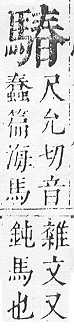 䮞
尺允切音
蠢篇海馬
雜文又
鈍馬也